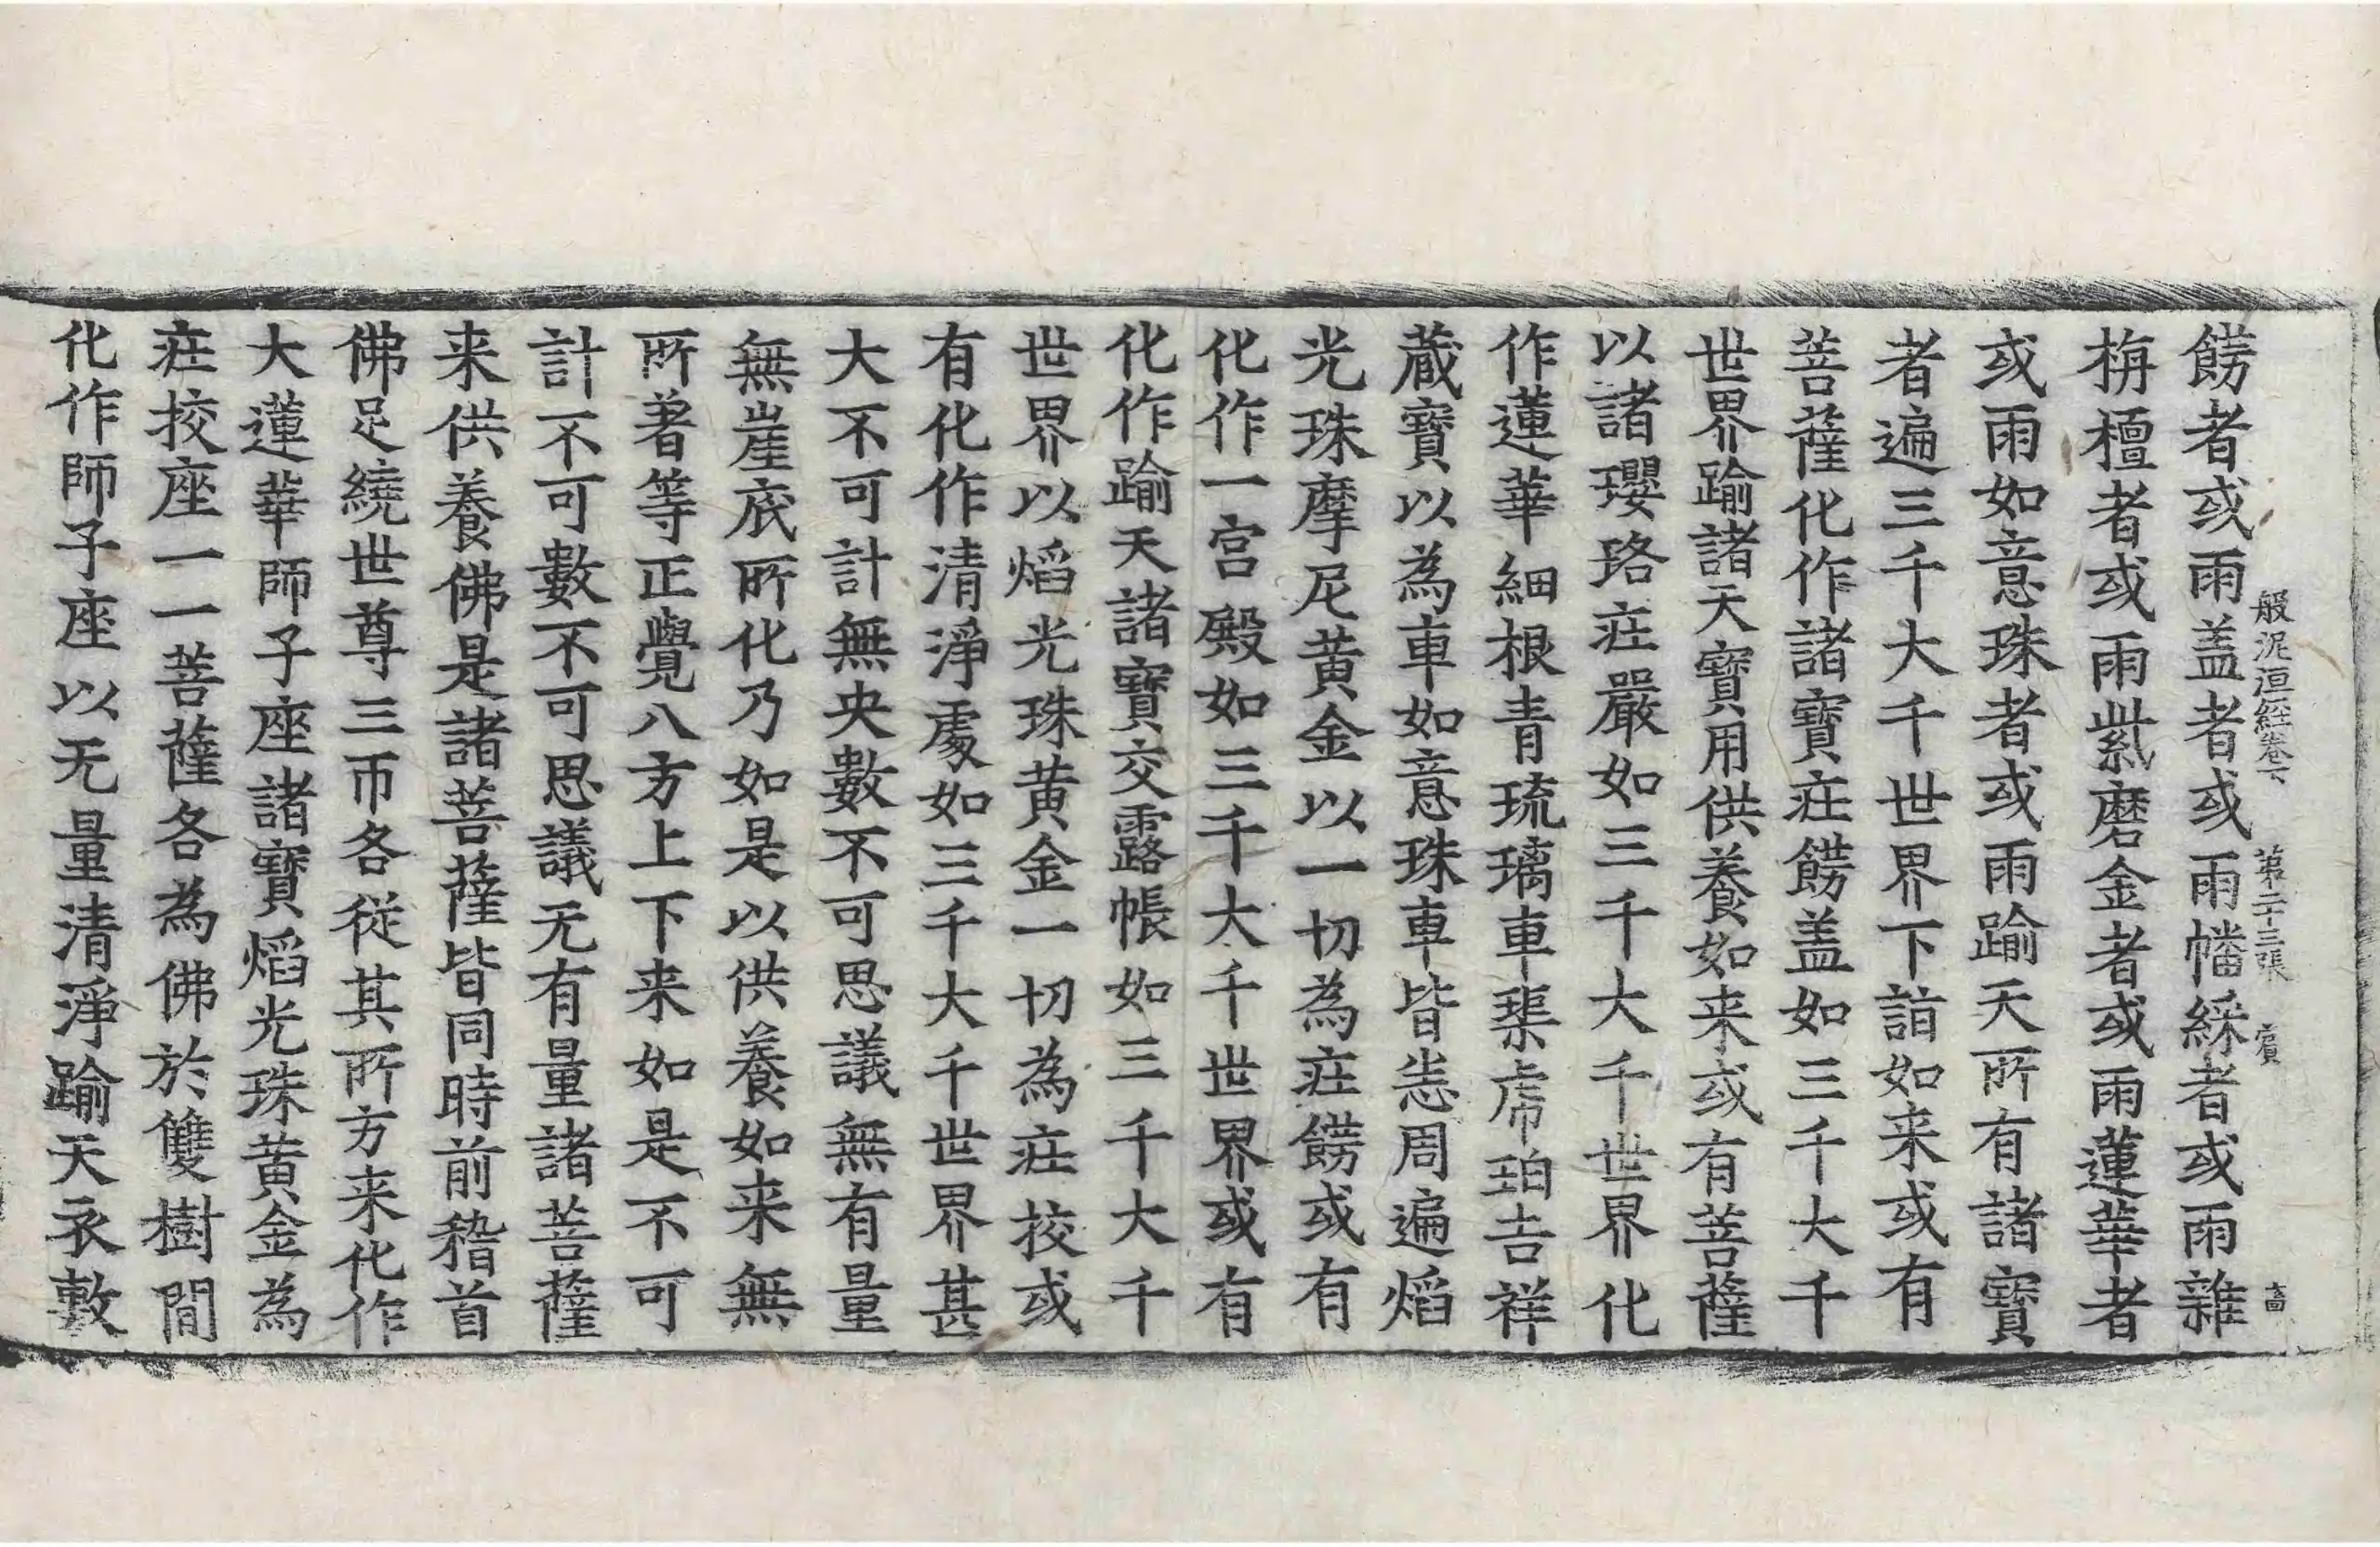 般泥洹經卷下 第二十三張 賔
餝者或雨盖者或雨幡綵者或雨雜
栴檀者或雨紫磨金者或雨蓮華者
或雨如意珠者或雨踰天所有諸寶
者遍三千大千世界下詣如来或有
菩薩化作諸寶莊餝盖如三千大千
世界踰諸天寶用供養如来或有菩薩
以諸瓔珞莊嚴如三千大千世界化
作蓮華細根青琉璃車𤦲虎珀吉祥
蔵寶以為車如意珠車皆悉周遍熖
光珠摩尼黄金以一切為莊餝或有
化作一宫殿如三千大千世界或有
化作踰天諸寶交露帳如三千大千
世界以熖光珠黄金一切為莊挍或
有化作清淨處如三千大千世界甚
大不可計無央數不可思議無有量
無崖底所化乃如是以供養如来無
所著等正覺八方上下来如是不可
計不可數不可思議无有量諸菩薩
来供養佛是諸菩薩皆同時前稽首
佛足繞世尊三帀各從其所方来化作
大蓮華師子座諸寶熖光珠黄金為
莊挍座一一菩薩各為佛於雙樹間
化作師子座以无量清淨踰天衣敷